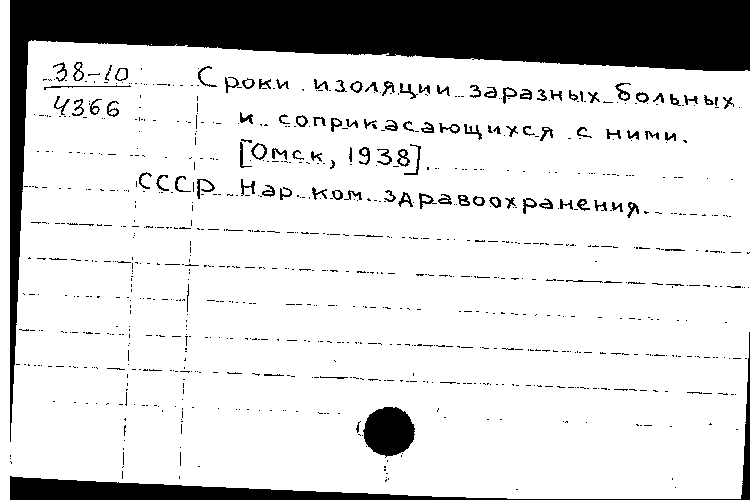 38-10
4366
Сроки изоляции заразных больных
и соприкасающихся с ними.
[Омск, 1938].
СССР Нар. ком. здравоохранения.